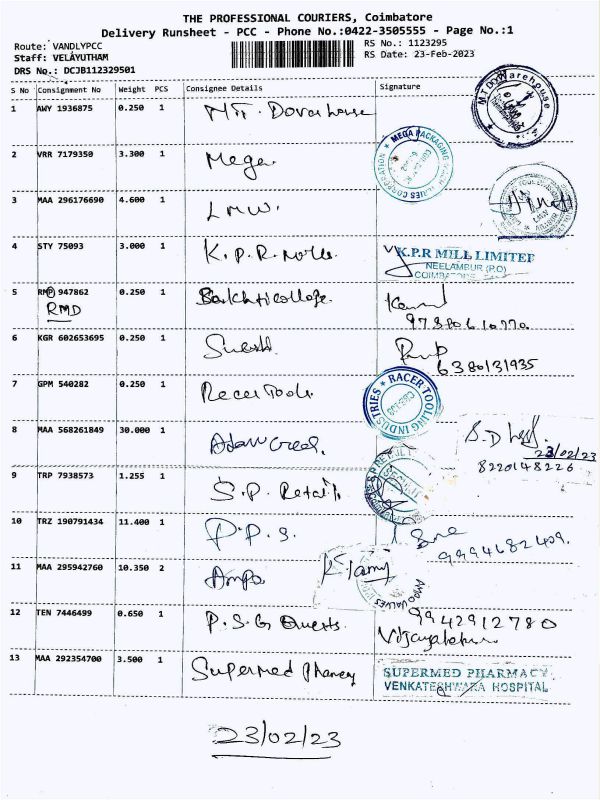 THE PROFESSIONAL COURIERS, Coimbatore
Delivery Runsheet - PCC - Phone No.:0422-3505555 - Page No.:1
Route: VANDLYPCC
Staff: VELAYUTHAM
DRS No.: DCJB112329501
RS No.: 1123295
RS Date: 23-Feb-2023
S No Consignment No Weight PCS Consignee Details Signature
1 AWY 1936875 0.250 1
MTD Warehouse
2 VRR 7179350 3.300 1 Mega
MEGA PACKAGING
CORPORATION
3 MAA 296176690 4.600 1 LMW.
4 STY 75093 3.000 1 K.P.R Mills.
K.P.R MILL LIMITED
NEELAMBUR (P.O)
5 RMP 947862 0.250 1
RMD
6 KGR 602653695 0.250 1
6380131935
7 GPM 540282 0.250 1 Racer Tools
RACER TOOLING INDUSTRIES
8 MAA 568261849 30.000 1
23/02/23
8220148226
9 TRP 7938573 1.255 1 S.P. Retails
10 TRZ 190791434 11.400 1 P.P.S.
9994682409.
11 MAA 295942760 10.350 2 Ampo
AMPO VALVES
12 TEN 7446499 0.650 1 P.S.G
9942912780
13 MAA 292354700 3.500 1 Supermed Pharmcy
SUPERMED PHARMACY
VENKATESHWARA HOSPITAL
23/02/23